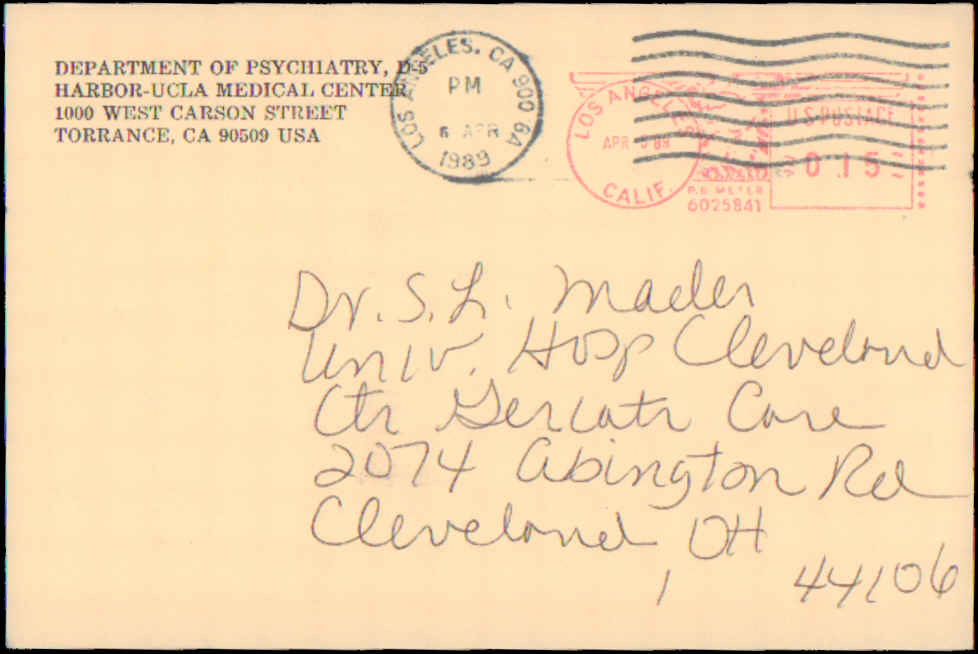 DEPARTMENT OF PSYCHIATRY, D-5
HARBOR-UCLA MEDICAL CENTER
1000 WEST CARSON STREET
TORRANCE, CA 90509 USA
LOS ANGELES, CA 900 6A
PM
6 APR
1989
LOS ANGELES
APR 89
CALIF.
P.B. METER
6025841
U.S. POSTAGE
0 15
Dr. S. L. Mader
Univ. Hosp Cleveland
Ctr Geriatr Care
2074 Abington Rd
Cleveland, OH
44106